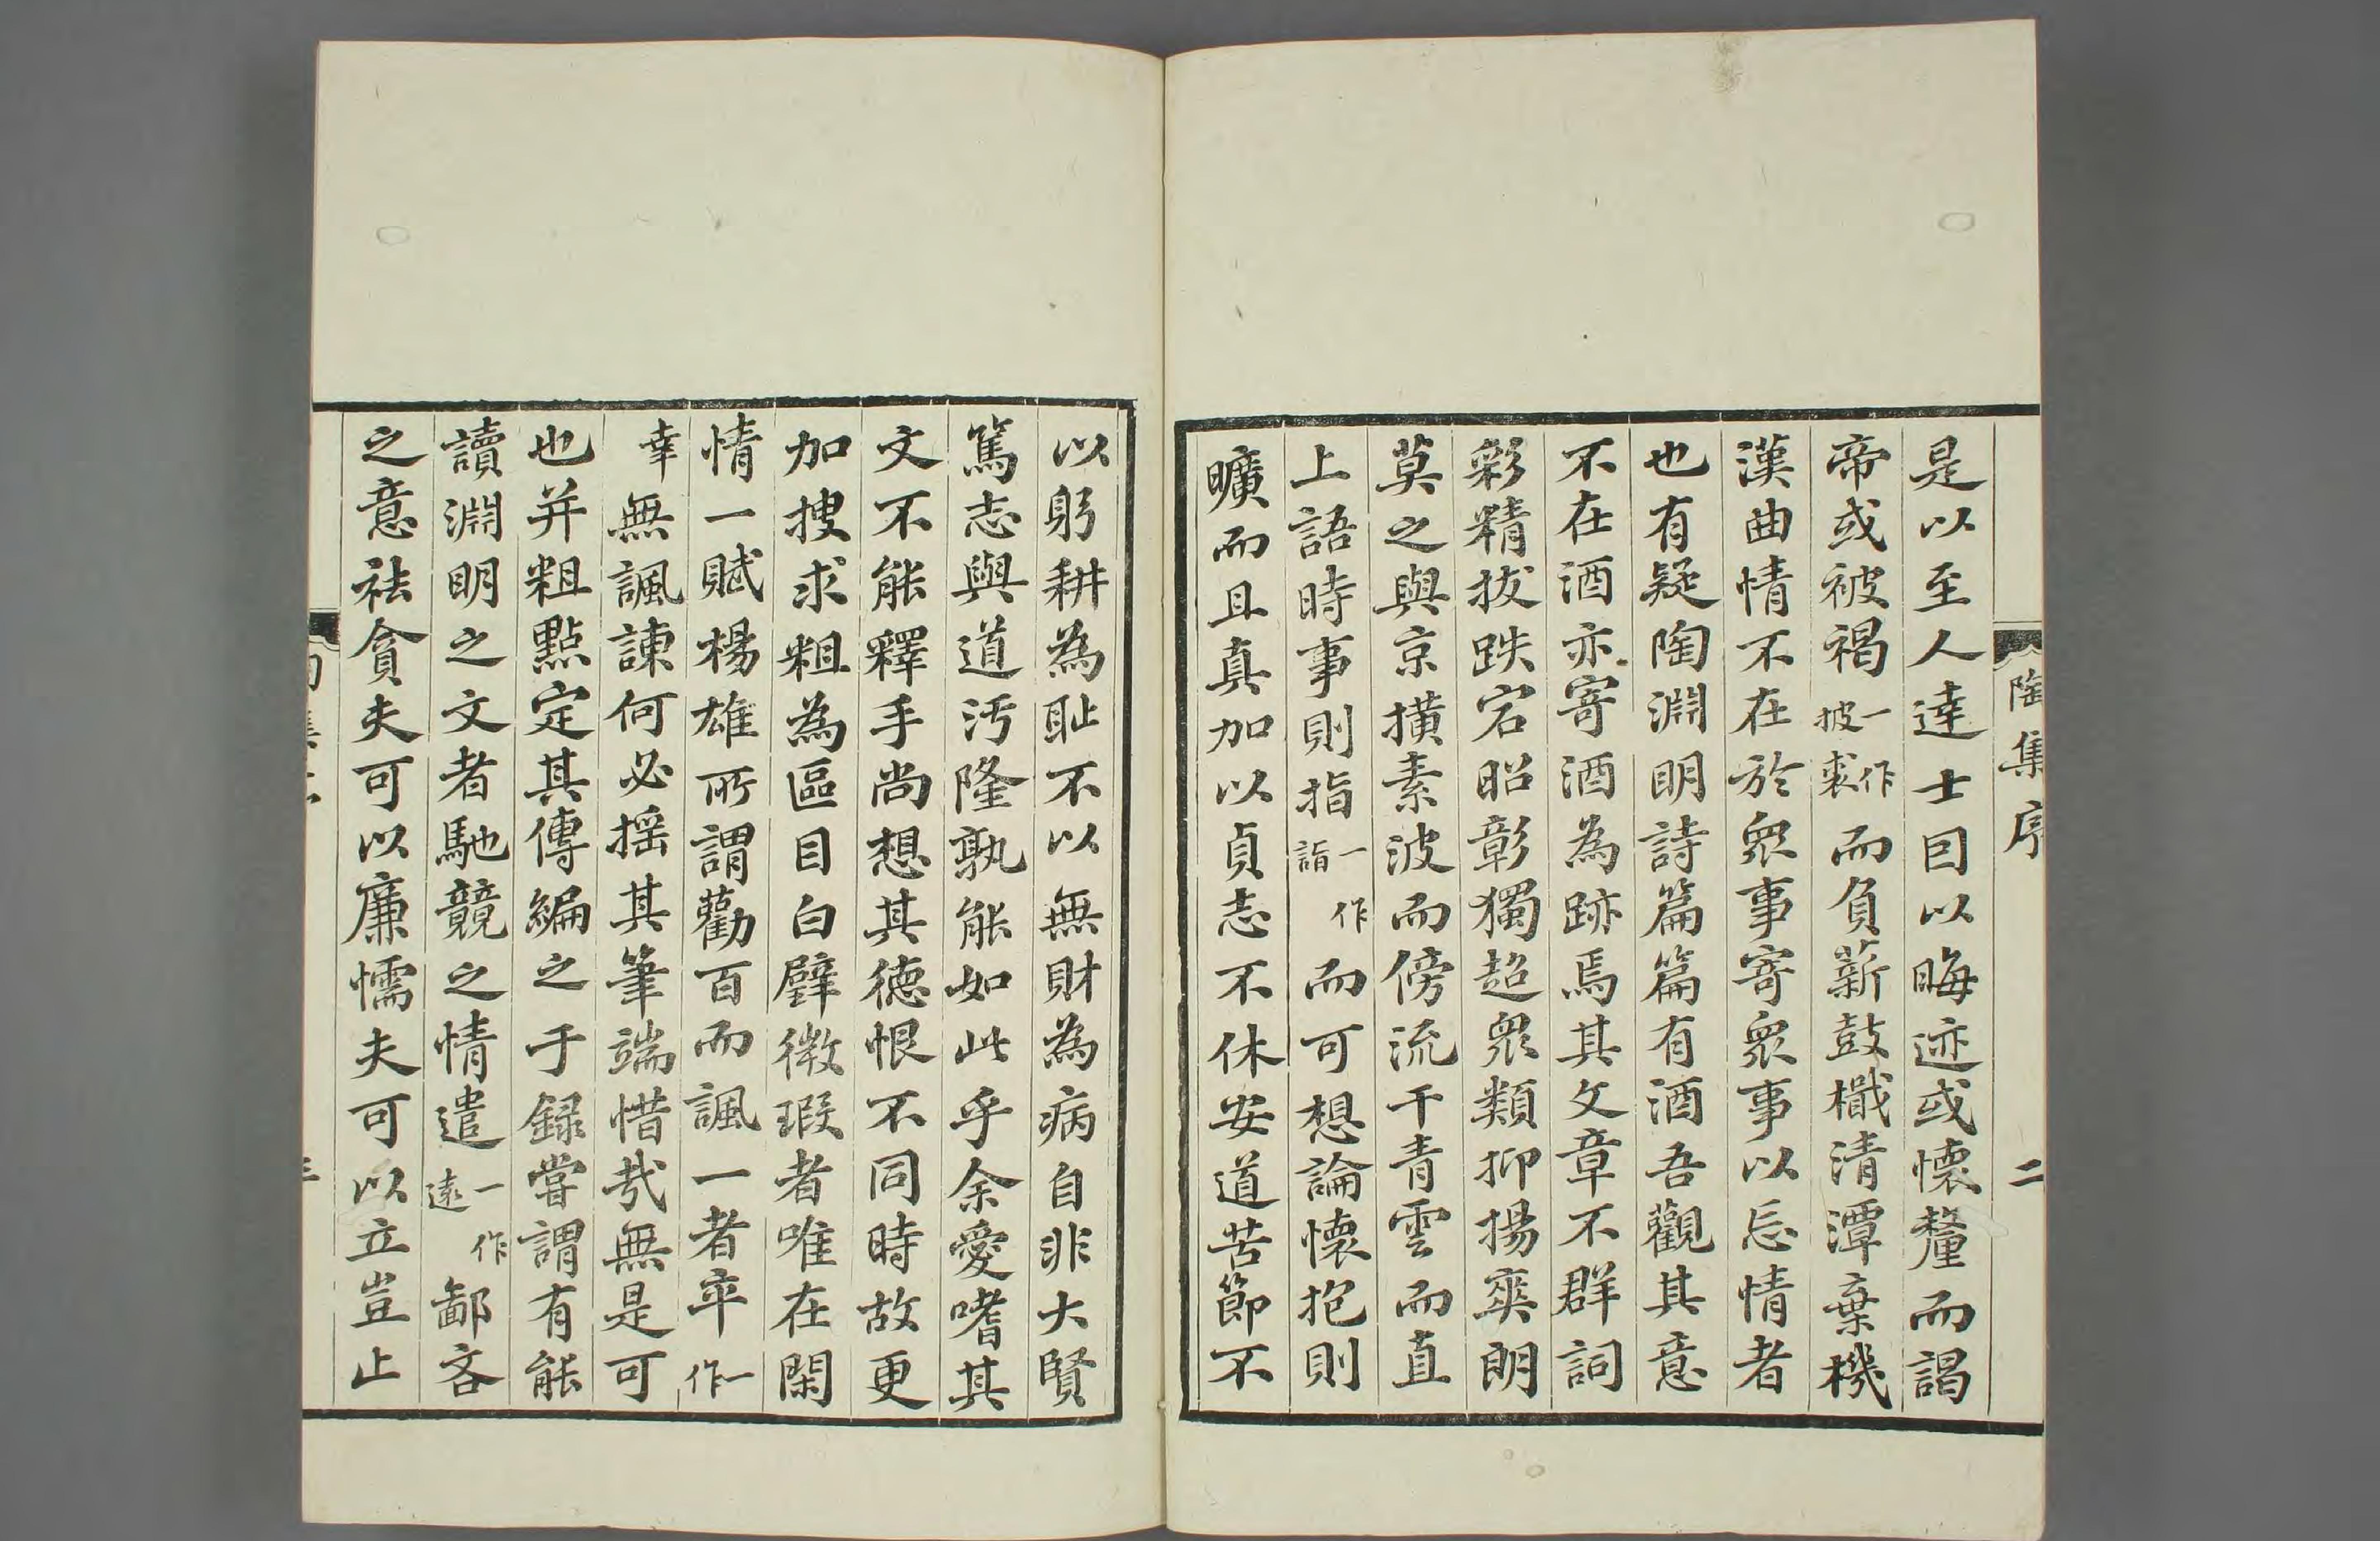 陶集序 二
是以至人達士因以晦迹或懷釐而謁
帝或被褐一作披裘而負薪鼓檝清潭棄機
漢曲情不在於眾事寄眾事以忘情者
也有疑陶淵明詩篇篇有酒吾觀其意
不在酒亦寄酒為跡焉其文章不群詞
彩精拔跌宕昭彰獨超眾類抑揚爽朗
莫之與京橫素波而傍流干青雲而直
上語時事則指一作詣而可想論懷抱則
曠而且真加以貞志不休安道苦節不
以躬耕為耻不以無財為病自非大賢
篤志與道汚隆孰能如此乎余愛嗜其
文不能釋手尚想其德恨不同時故更
加搜求粗為區目白璧微瑕者唯在閑
情一賦楊雄所謂勸百而諷一者卒一作
幸無諷諫何必搖其筆端惜哉無是可
也并粗點定其傳編之于録嘗謂有能
讀淵明之文者馳競之情遣一作逺鄙吝
之意袪貪夫可以廉懦夫可以立豈止